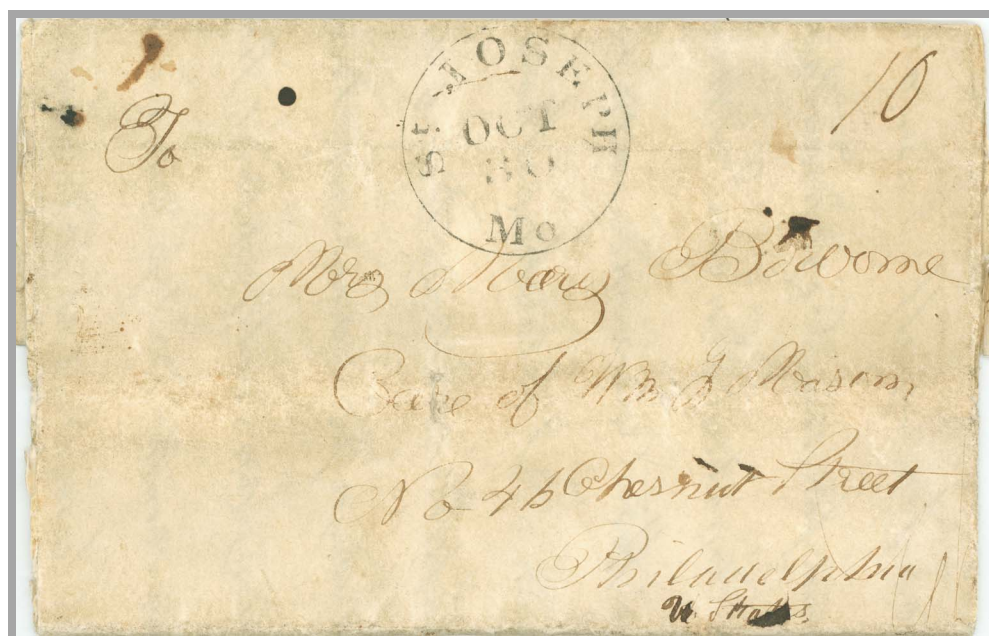 St. JOSEPH
OCT
30
Mo
10
To
Mrs Mary
Care of Wm J Mason
No 46 Chesnut Street
Philadelphia
U. States